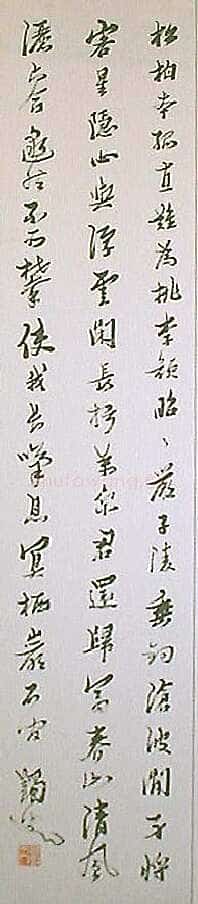 松柏本孤直難為桃李顏昭昭嚴子陵垂釣滄波間身將
客星隱心與浮雲閑長揖萬乘君還歸富春山清風
灑六合邈然不可攀使我長嘆息冥棲巖石間